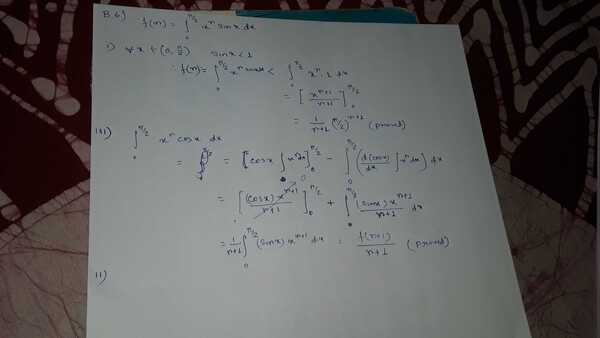 B 6) f(n) = ∫₀^(π/2) xⁿ sinx dx
i) ∀ x ∈ (0, π/2) sinx < 1
∴ f(n) = ∫₀^(π/2) xⁿ sinx dx < ∫₀^(π/2) xⁿ . 1 dx
= [xⁿ⁺¹/(n+1)]₀^(π/2)
= 1/(n+1) (π/2)ⁿ⁺¹ (proved)
iii) ∫₀^(π/2) xⁿ cosx dx
= = [cosx ∫ xⁿ dx]₀^(π/2) − ∫₀^(π/2) (d(cosx)/dx ∫ xⁿ dx) dx
= [(cosx) xⁿ⁺¹/(n+1)]₀^(π/2) + ∫₀^(π/2) (sinx) xⁿ⁺¹/(n+1) dx
= 1/(n+1) ∫₀^(π/2) (sinx) xⁿ⁺¹ dx = f(n+1)/(n+1) (proved)
ii)